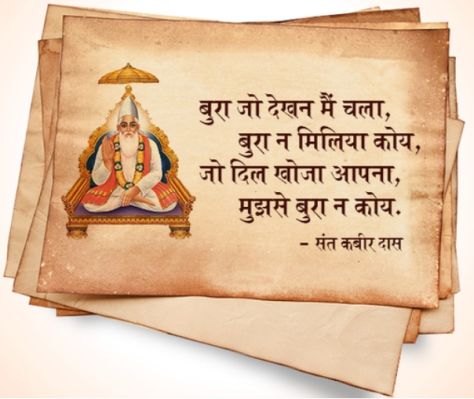 बुरा जो देखन मैं चला,
बुरा न मिलिया कोय,
जो दिल खोजा आपना,
मुझसे बुरा न कोय.
- संत कबीर दास